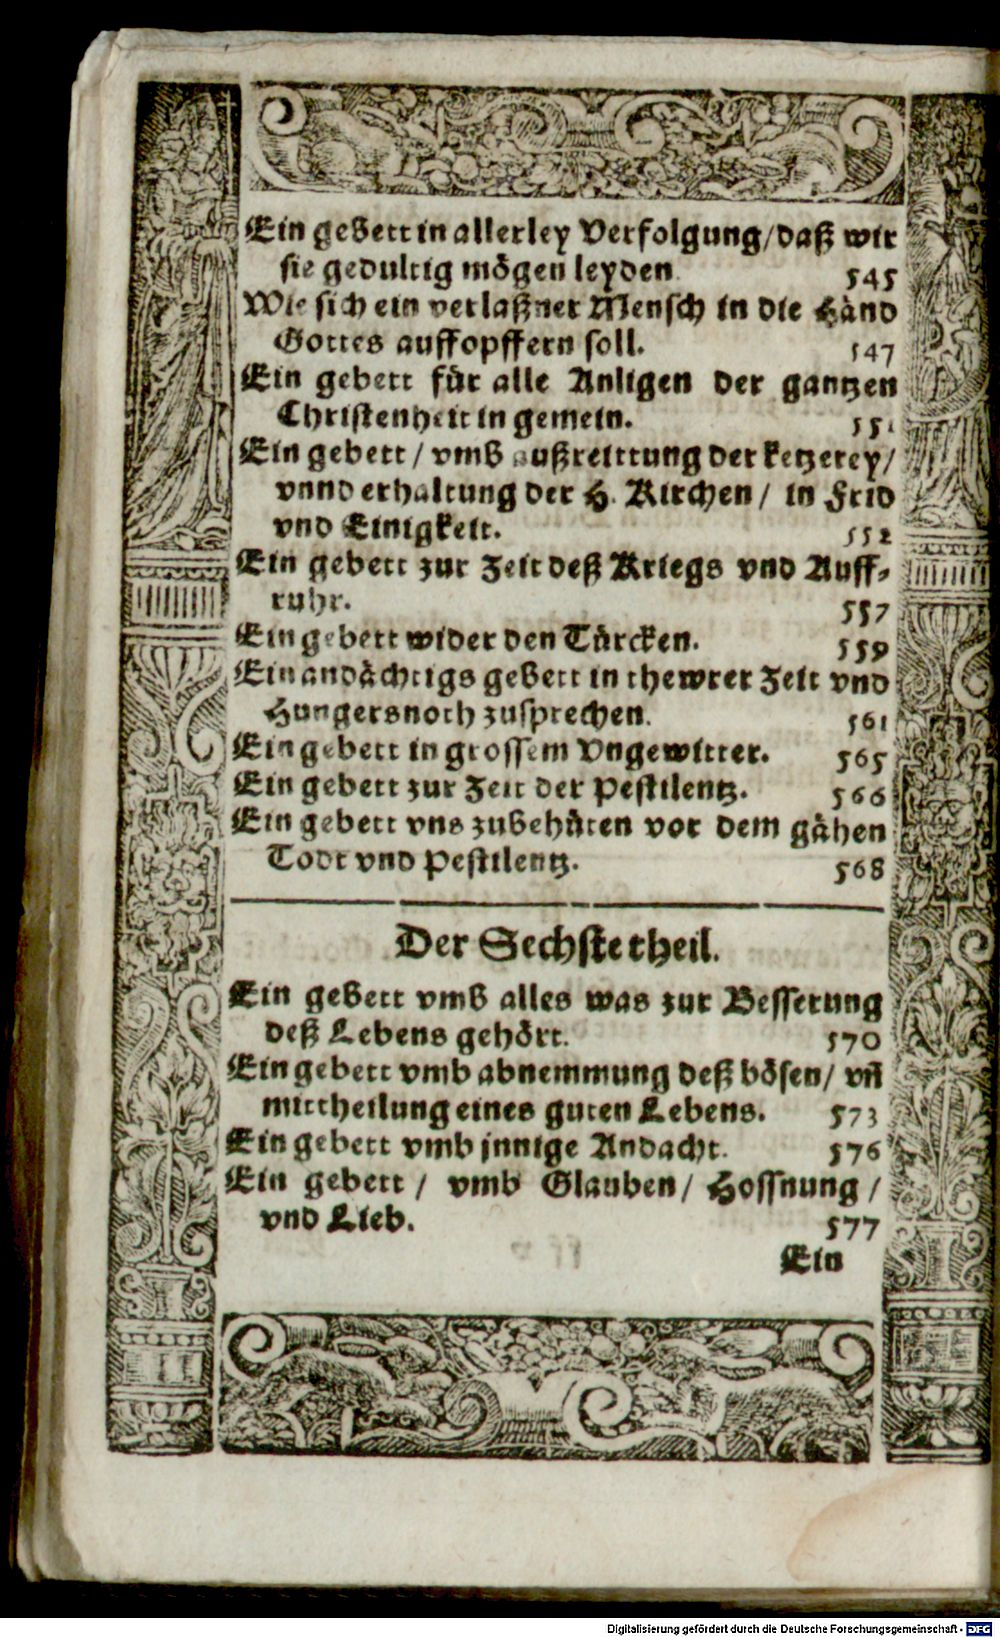 Ein gebett in allerley Verfolgung/daß wir
sie gedultig mögen leyden. 545
Wie sich ein verlaßner Mensch in die Händ
Gottes auffopffern soll. 547
Ein gebett für alle Anligen der gantzen
Christenheit in gemein. 551
Ein gebett / vmb außreittung der ketzerey/
vnnd erhaltung der H. Kirchen / in Frid
vnd Einigkeit. 552
Ein gebett zur Zeit deß Kriegs vnd Auff-
ruhr. 557
Ein gebett wider den Türcken. 559
Ein andächtigs gebett in thewrer Zeit vnd
Hungersnoth zusprechen. 561
Ein gebett in grossem Vngewitter. 565
Ein gebett zur Zeit der Pestilentz. 566
Ein gebett vns zubehüten vor dem gähen
Todt vnd Pestilentz. 568
Der Sechste theil.
Ein gebett vmb alles was zur Besserung
deß Lebens gehört. 570
Ein gebett vmb abnemmung deß bösen/ vñ
mittheilung eines guten Lebens. 573
Ein gebett vmb jnnige Andacht. 576
Ein gebett / vmb Glauben/ Hoffnung /
vnd Lieb. 577
Ein
Digitalisierung gefördert durch die Deutsche Forschungsgemeinschaft - DFG